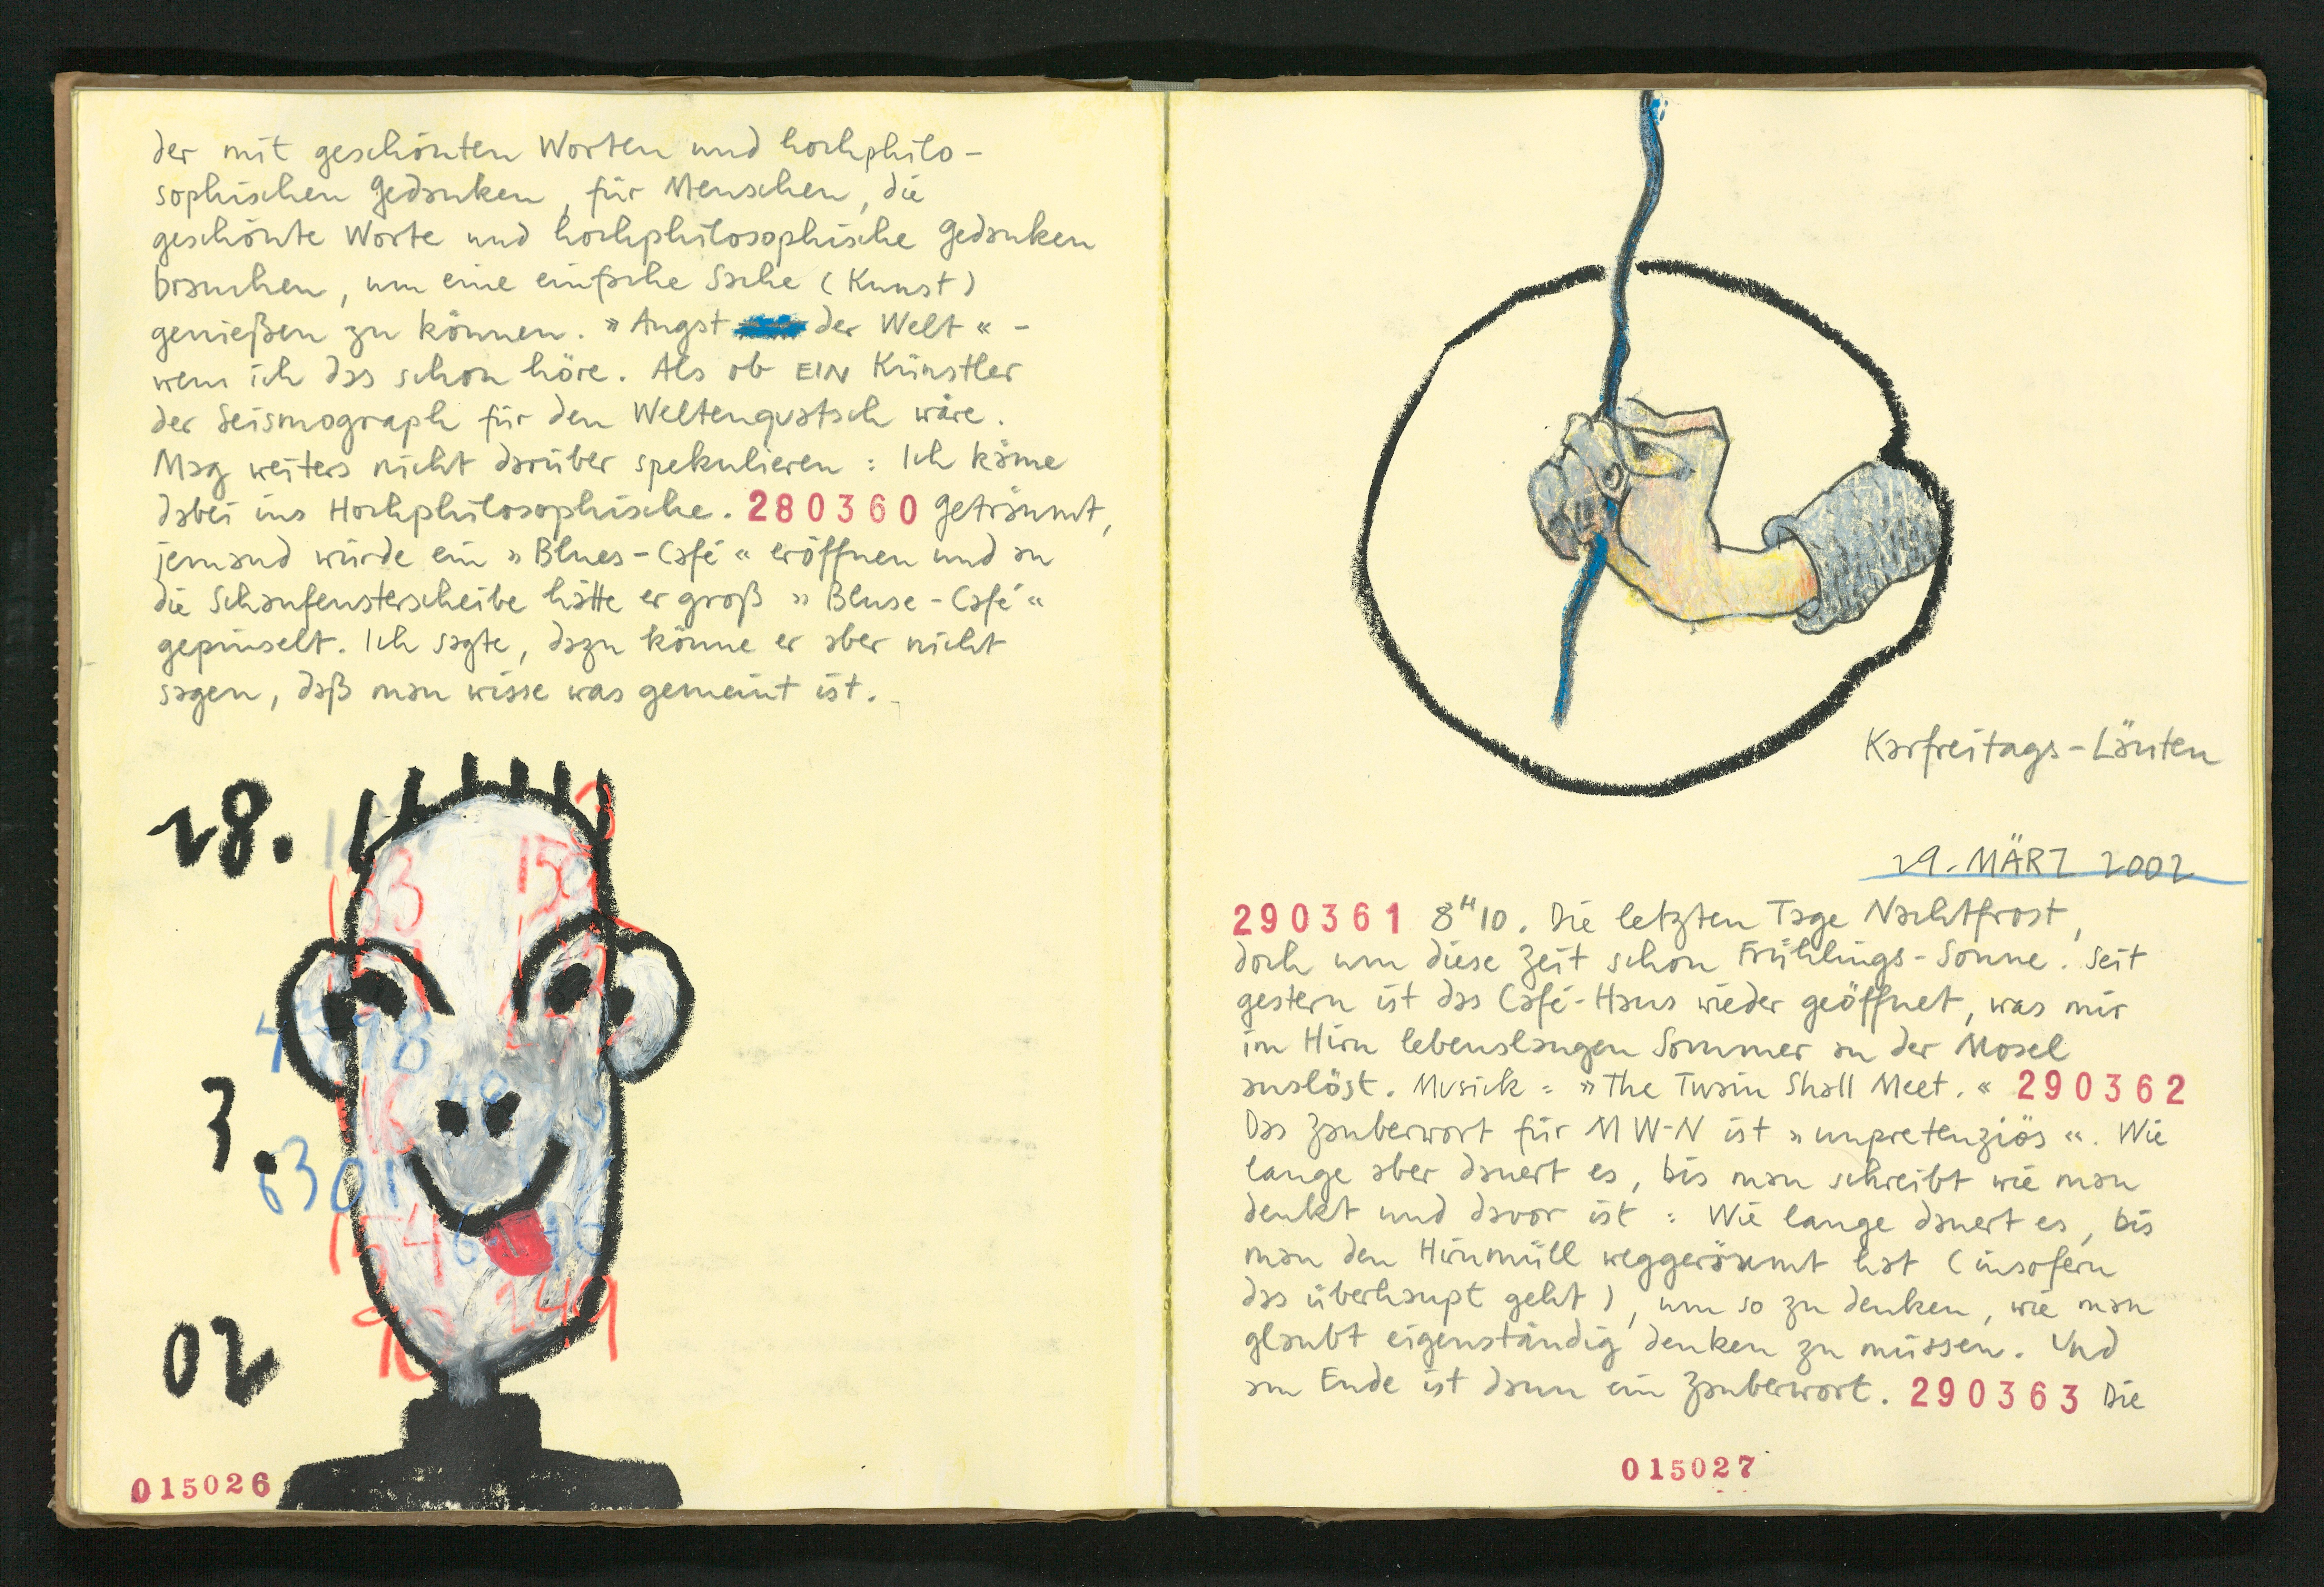 der mit geschönten Worten und hochphilo-
sophischen Gedanken, für Menschen, die
geschönte Worte und hochphilosophische Gedanken
brauchen, um eine einfache Sache (Kunst)
genießen zu können. »Angst der Welt« -
wenn ich das schon höre. Als ob EIN Künstler
der Seismograph für den Weltenqvatsch wäre.
Mag weiters nicht darüber spekulieren: Ich käme
dabei ins Hochphilosophische. 280360 Geträumt,
jemand würde ein »Blues-Café« eröffnen und an
die Schaufensterscheibe hätte er groß »Bluse-Café«
gepinselt. Ich sagte, dazu könne er aber nicht
sagen, daß man wisse was gemeint ist.
28.
3.
02
153
150
4798
16
6301
154
249
015026
Karfreitags-Läuten
29. MÄRZ 2002
290361 8H10. Die letzten Tage Nachtfrost,
doch um diese Zeit schon Frühlings-Sonne. Seit
gestern ist das Café-Haus wieder geöffnet, was mir
im Hirn lebenslangen Sommer an der Mosel
auslöst. Musick: »The Twain Shall Meet.« 290362
Das Zauberwort für MW-N ist »unpretenziös«. Wie
lange aber dauert es, bis man schreibt wie man
denkt und davor ist: Wie lange dauert es, bis
man den Hirnmüll weggeräumt hat (insofern
das überhaupt geht), um so zu denken, wie man
glaubt eigenständig denken zu müssen. Und
am Ende ist dann ein Zauberwort. 290363 Die
015027